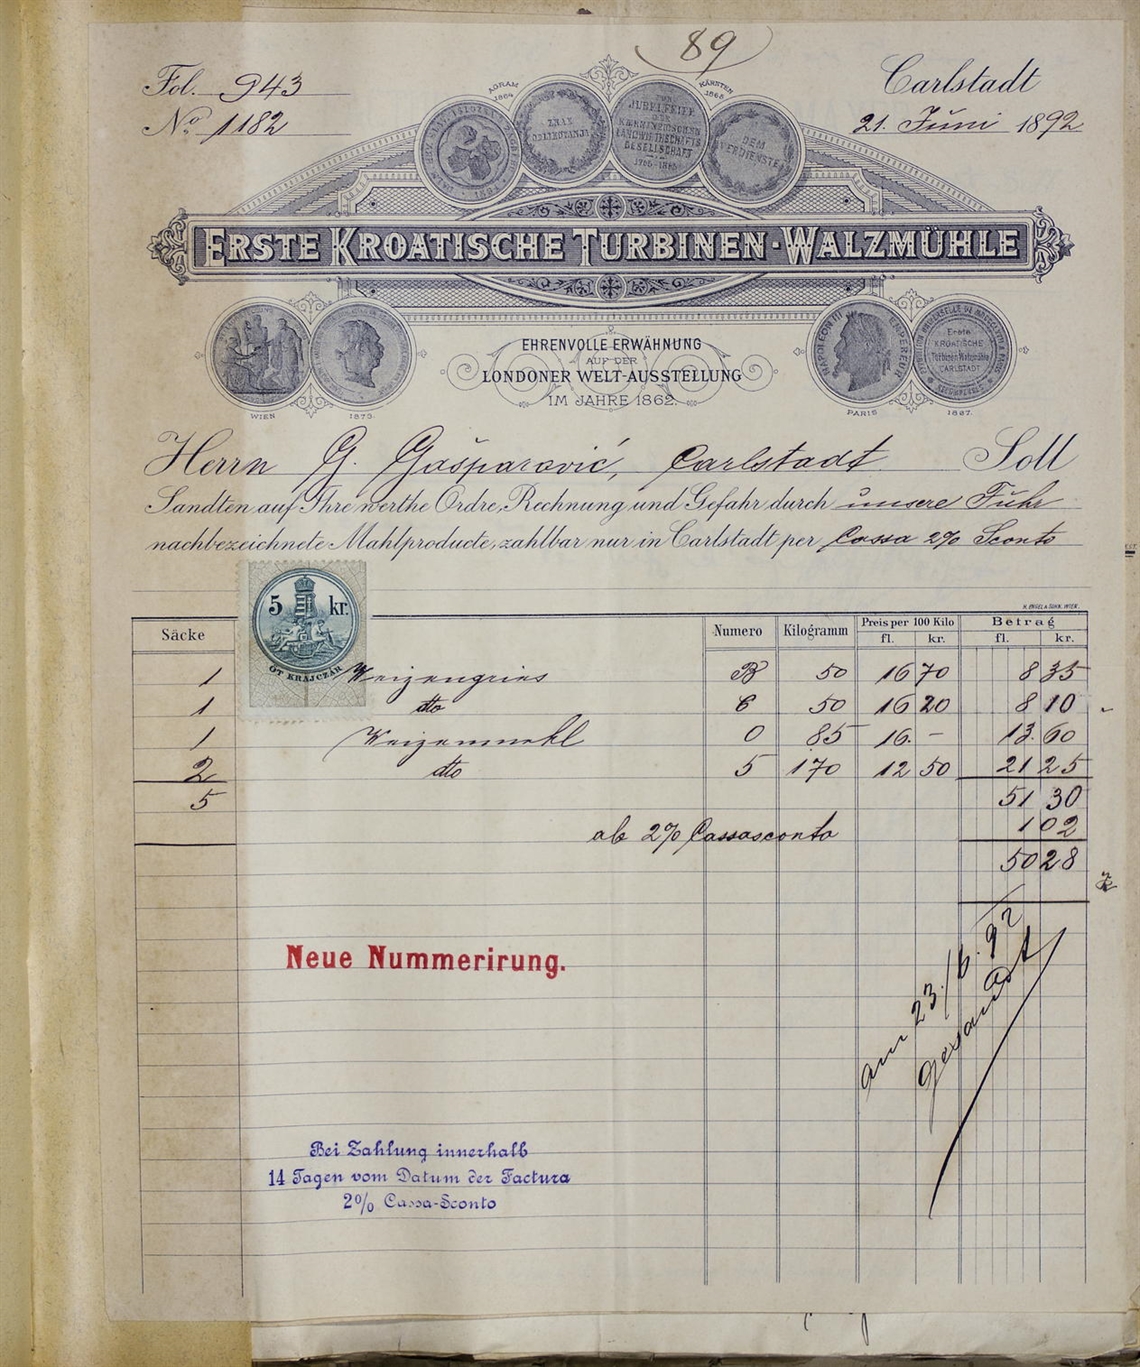 89
Fol. 943
No. 1182
Carlstadt
21. Juni 1892
AGRAM 1864
KÄRNTEN 1865
ZNAK ODLIKOVANJA
ZUR JUBELFEIER DER KÄRNTNERISCHEN LANDWIRTHSCHAFTS GESELLSCHAFT 1765-1865
DEM VERDIENSTE
ERSTE KROATISCHE TURBINEN-WALZMÜHLE
EHRENVOLLE ERWÄHNUNG
AUF DER
LONDONER WELT-AUSSTELLUNG
IM JAHRE 1862.
WIEN 1873.
NAPOLEON III EMPEREUR
Erste KROATISCHE Turbinen-Walzmühle CARLSTADT
PARIS 1867.
Herrn G. Gašparović, Carlstadt Soll
Sandten auf Ihre werthe Ordre, Rechnung und Gefahr durch unsere Fuhr
nachbezeichnete Mahlproducte, zahlbar nur in Carlstadt per Cassa 2% Sconto
5 kr.
ÖT KRAJCZÁR
H. ENGEL & SOHN, WIEN.
Säcke Numero Kilogramm Preis per 100 Kilo Betrag
fl. kr. fl. kr.
1 Weizengries B 50 16 70 8 35
1 dto C 50 16 20 8 10
1 Weizenmehl 0 85 16.- 13.60
2 dto 5 170 12 50 21 25
5 51 30
ab 2% Cassasconto 1 02
50 28
Neue Nummerirung.
am 23./6.92
gesandt
Bei Zahlung innerhalb
14 Tagen vom Datum der Factura
2% Cassa-Sconto